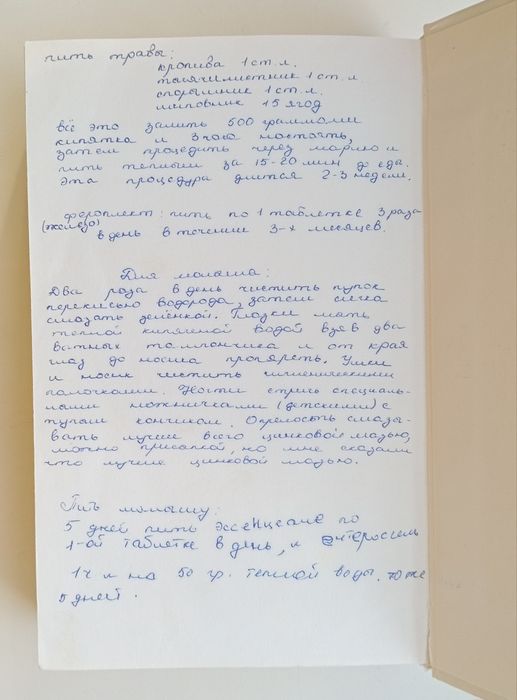 пить травы:
крапива 1 ст. л.
тысячилистник 1 ст. л
спорышник 1 ст. л.
шиповник 15 ягод
всё это залить 500 граммами
кипятка и 3 часа настоять,
затем процедить через марлю и
пить тёплым за 15-20 мин до еды.
Эта процедура длится 2-3 недели.
Фероплект: пить по 1 таблетке 3 раза
(железо)
в день в течении 3-х месяцев.
Для малыша:
Два раза в день чистить пупок
перекисью водорода, затем слегка
смазать зелёнкой. Глазки мыть
теплой кипячёной водой взяв два
ватных тампончика и от края
глаз до носика протереть. Ушки
и носик чистить гигиеническими
палочками. Ногти стричь специаль-
ными ножничками (детскими) с
тупым кончиком. Опрелость смазы-
вать лучше всего цинковой мазью,
можно присыпкой, но мне сказали
что лучше цинковой мазью.
Пить малышу:
5 дней пить по
1-ой таблетке в день, и энтеросгель
1 ч л на 50 гр. теплой воды. тоже
5 дней.